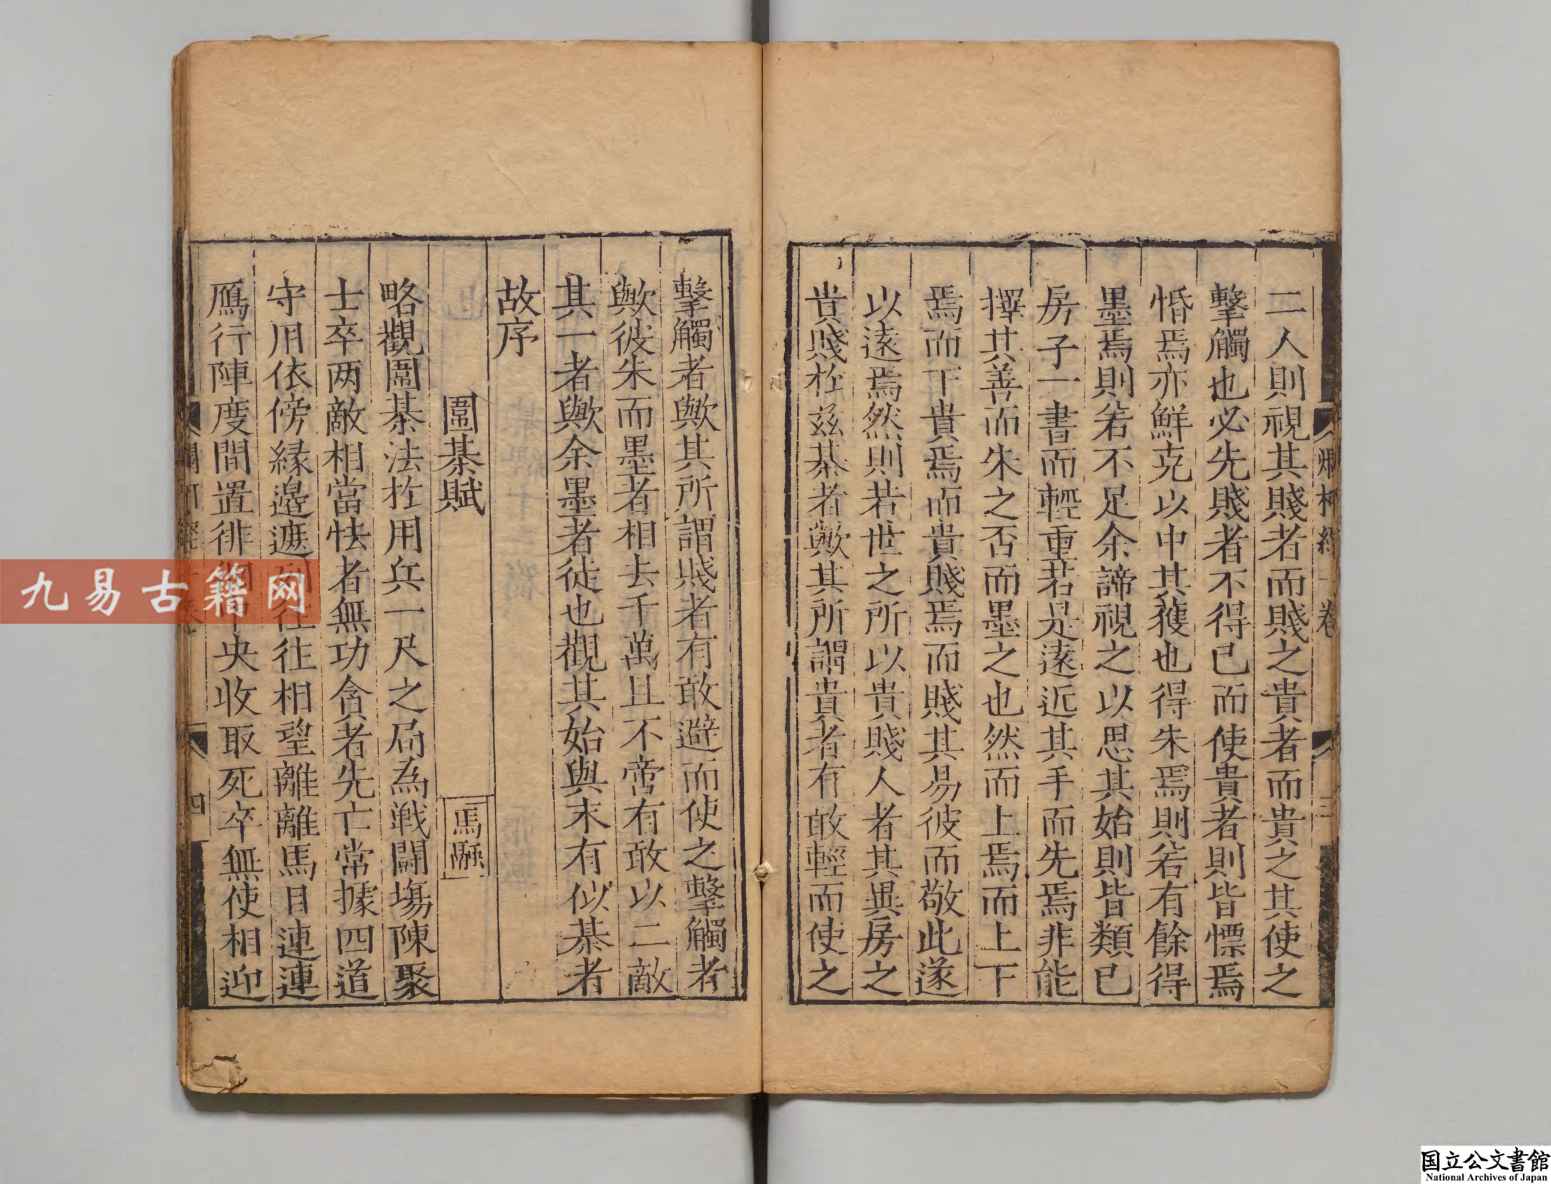 二人則視其賤者而賤之貴者而貴之其使之
擊觸也必先賤者不得已而使貴者則皆慓焉
惛焉亦鮮克以中其獲也得朱焉則若有餘得
墨焉則若不足余諦視之以思其始則皆類已
房子一書而輕重若是遠近其手而先焉非能
擇其善而朱之否而墨之也然而上焉而上下
焉而下貴焉而貴賤焉而賤其易彼而敬此遂
以遠焉然則若世之所以貴賤人者其異房之
貴賤於茲棊者歟其所謂貴者有敢輕而使之
擊觸者歟其所謂賤者有敢避而使之擊觸者
歟彼朱而墨者相去千萬且不啻有敢以二敵
其一者歟余墨者徒也觀其始與末有似棊者
故序
圍棊賦
馬融
略觀圍棊法於用兵一尺之局為戰鬬塲陳聚
士卒两敵相當怯者無功貪者先亡常據四道
守用依傍緣邉遮
往相望離離馬目連連
鴈行陣度間置徘
央收取死卒無使相迎
四
卷
三
九易古籍网
国立公文書館
National Archives of Japan